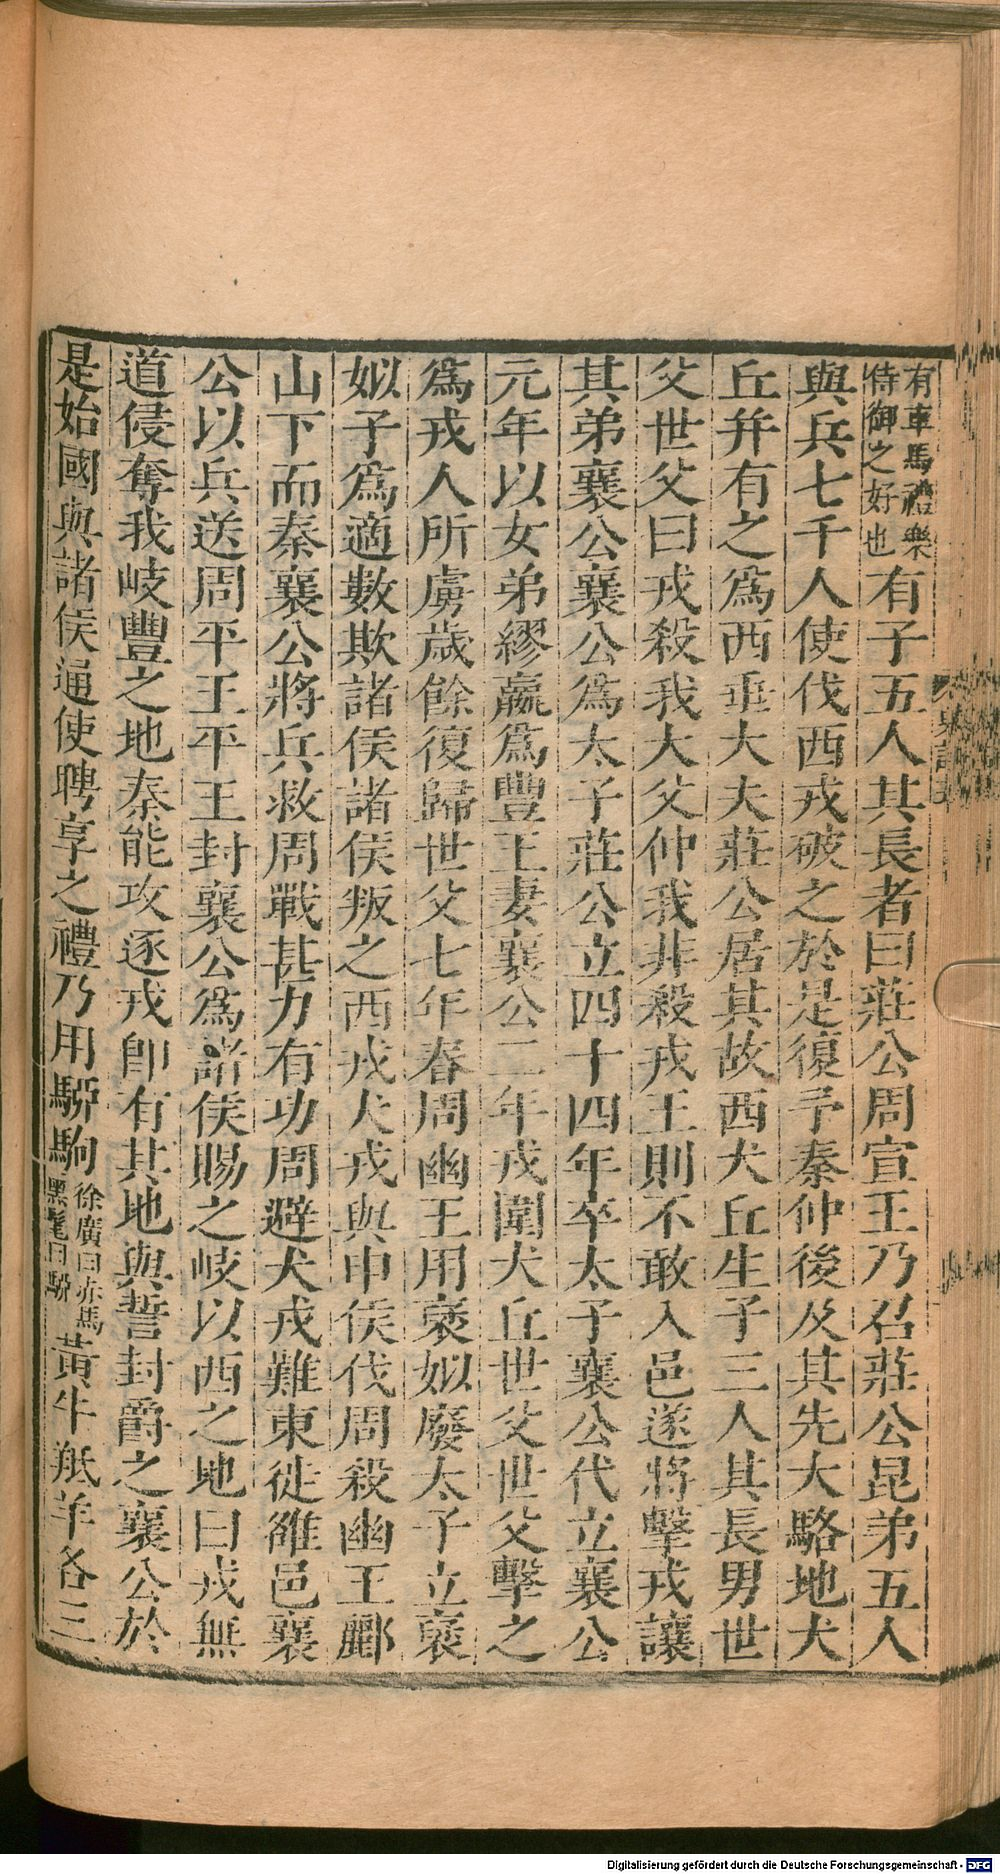 有車馬禮樂
侍御之好也
有子五人其長者曰莊公周宣王乃召莊公昆弟五人
與兵七千人使伐西戎破之於是復予秦仲後及其先大駱地犬
丘幷有之爲西垂大夫莊公居其故西犬丘生子三人其長男世
父世父曰戎殺我大父仲我非殺戎王則不敢入邑遂將擊戎讓
其弟襄公襄公爲太子莊公立四十四年卒太子襄公代立襄公
元年以女弟繆嬴爲豐王妻襄公二年戎圍犬丘世父世父擊之
爲戎人所虜歲餘復歸世父七年春周幽王用褒姒廢太子立褒
姒子爲適數欺諸侯諸侯叛之西戎犬戎與申侯伐周殺幽王酈
山下而秦襄公將兵救周戰甚力有功周避犬戎難東徙雒邑襄
公以兵送周平王平王封襄公爲諸侯賜之岐以西之地曰戎無
道侵奪我岐豐之地秦能攻逐戎卽有其地與誓封爵之襄公於
是始國與諸侯通使聘享之禮乃用駵駒
徐廣曰赤馬
黑髦曰駵
黃牛羝羊各三
Digitalisierung gefördert durch die Deutsche Forschungsgemeinschaft - DFG